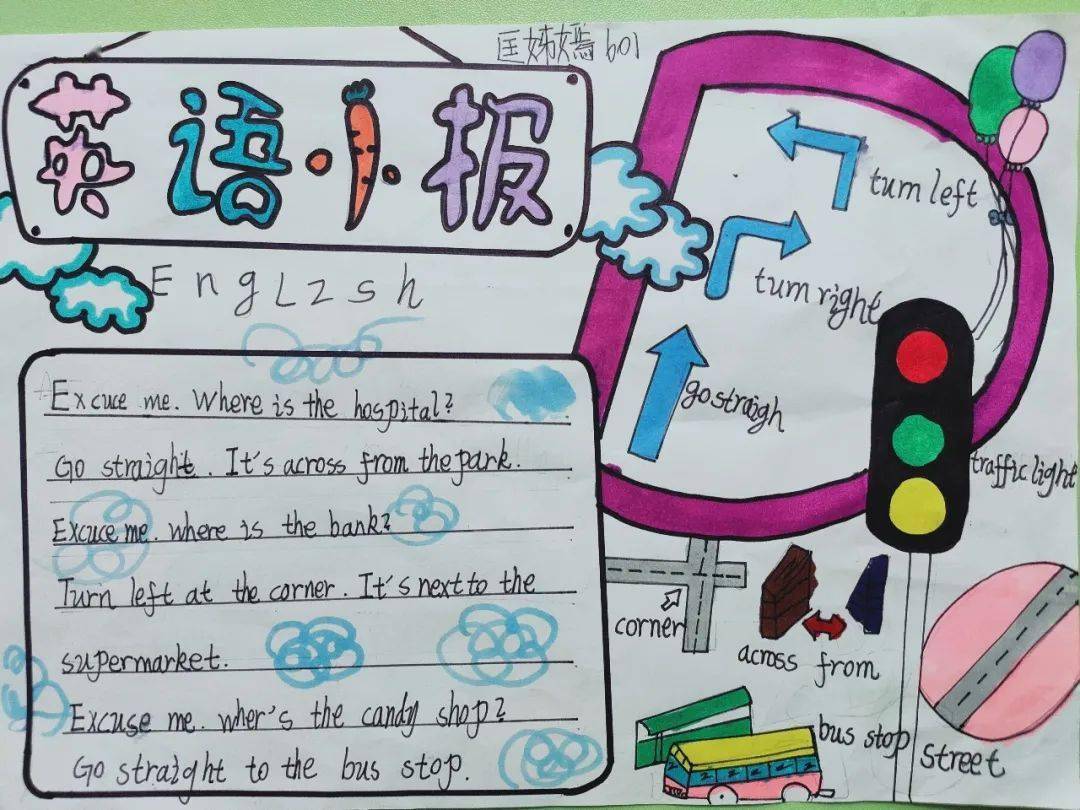 匡姊嫣 601
英语小报
EngLzsh
Excuce me. Where is the hospital?
Go straight. It's across from the park.
Excuce me. where is the bank?
Turn left at the corner. It's next to the
supermarket.
Excuse me. wher's the candy shop?
Go straight to the bus stop.
turn left
turn right
go straigh
traffic light
corner
across from
bus stop
street